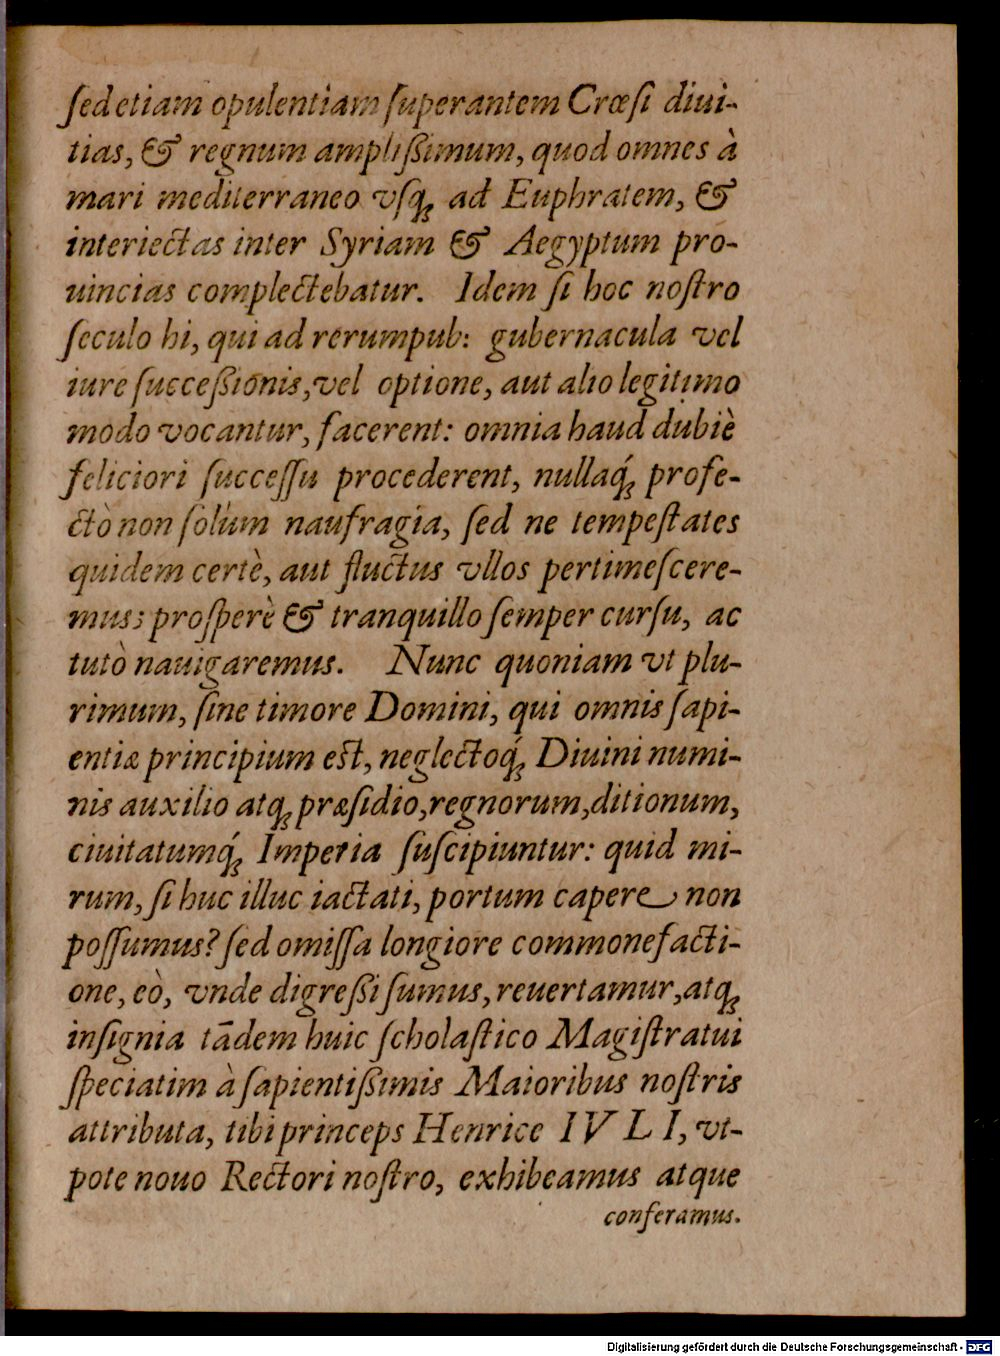 ſed etiam opulentiam ſuperantem Crœſi diui-
tias, & regnum ampliſsimum, quod omnes à
mari mediterraneo vſq; ad Euphratem, &
interiectas inter Syriam & Aegyptum pro-
uincias complectebatur. Idem ſi hoc noſtro
ſeculo hi, qui ad rerumpub: gubernacula vel
iure ſucceßionis, vel optione, aut alio legitimo
modo vocantur, facerent: omnia haud dubiè
feliciori ſucceſſu procederent, nullaq́; profe-
ctò non ſolùm naufragia, ſed ne tempeſtates
quidem certè, aut fluctus vllos pertimeſcere-
mus; proſperè & tranquillo ſemper curſu, ac
tutò nauigaremus. Nunc quoniam vt plu-
rimum, ſine timore Domini, qui omnis ſapi-
entiæ principium est, neglectoq́; Diuini numi-
nis auxilio atq; præſidio, regnorum, ditionum,
ciuitatumq́; Imperia ſuſcipiuntur: quid mi-
rum, ſi huc illuc iactati, portum capere non
poſſumus? ſed omiſſa longiore commonefacti-
one, eò, vnde digreßi ſumus, reuertamur, atq;
inſignia tādem huic ſcholaſtico Magiſtratui
ſpeciatim à ſapientißimis Maioribus noſtris
attributa, tibi princeps Henrice IVLI, vt-
pote nouo Rectori noſtro, exhibeamus atque
conferamus.
Digitalisierung gefördert durch die Deutsche Forschungsgemeinschaft - DFG